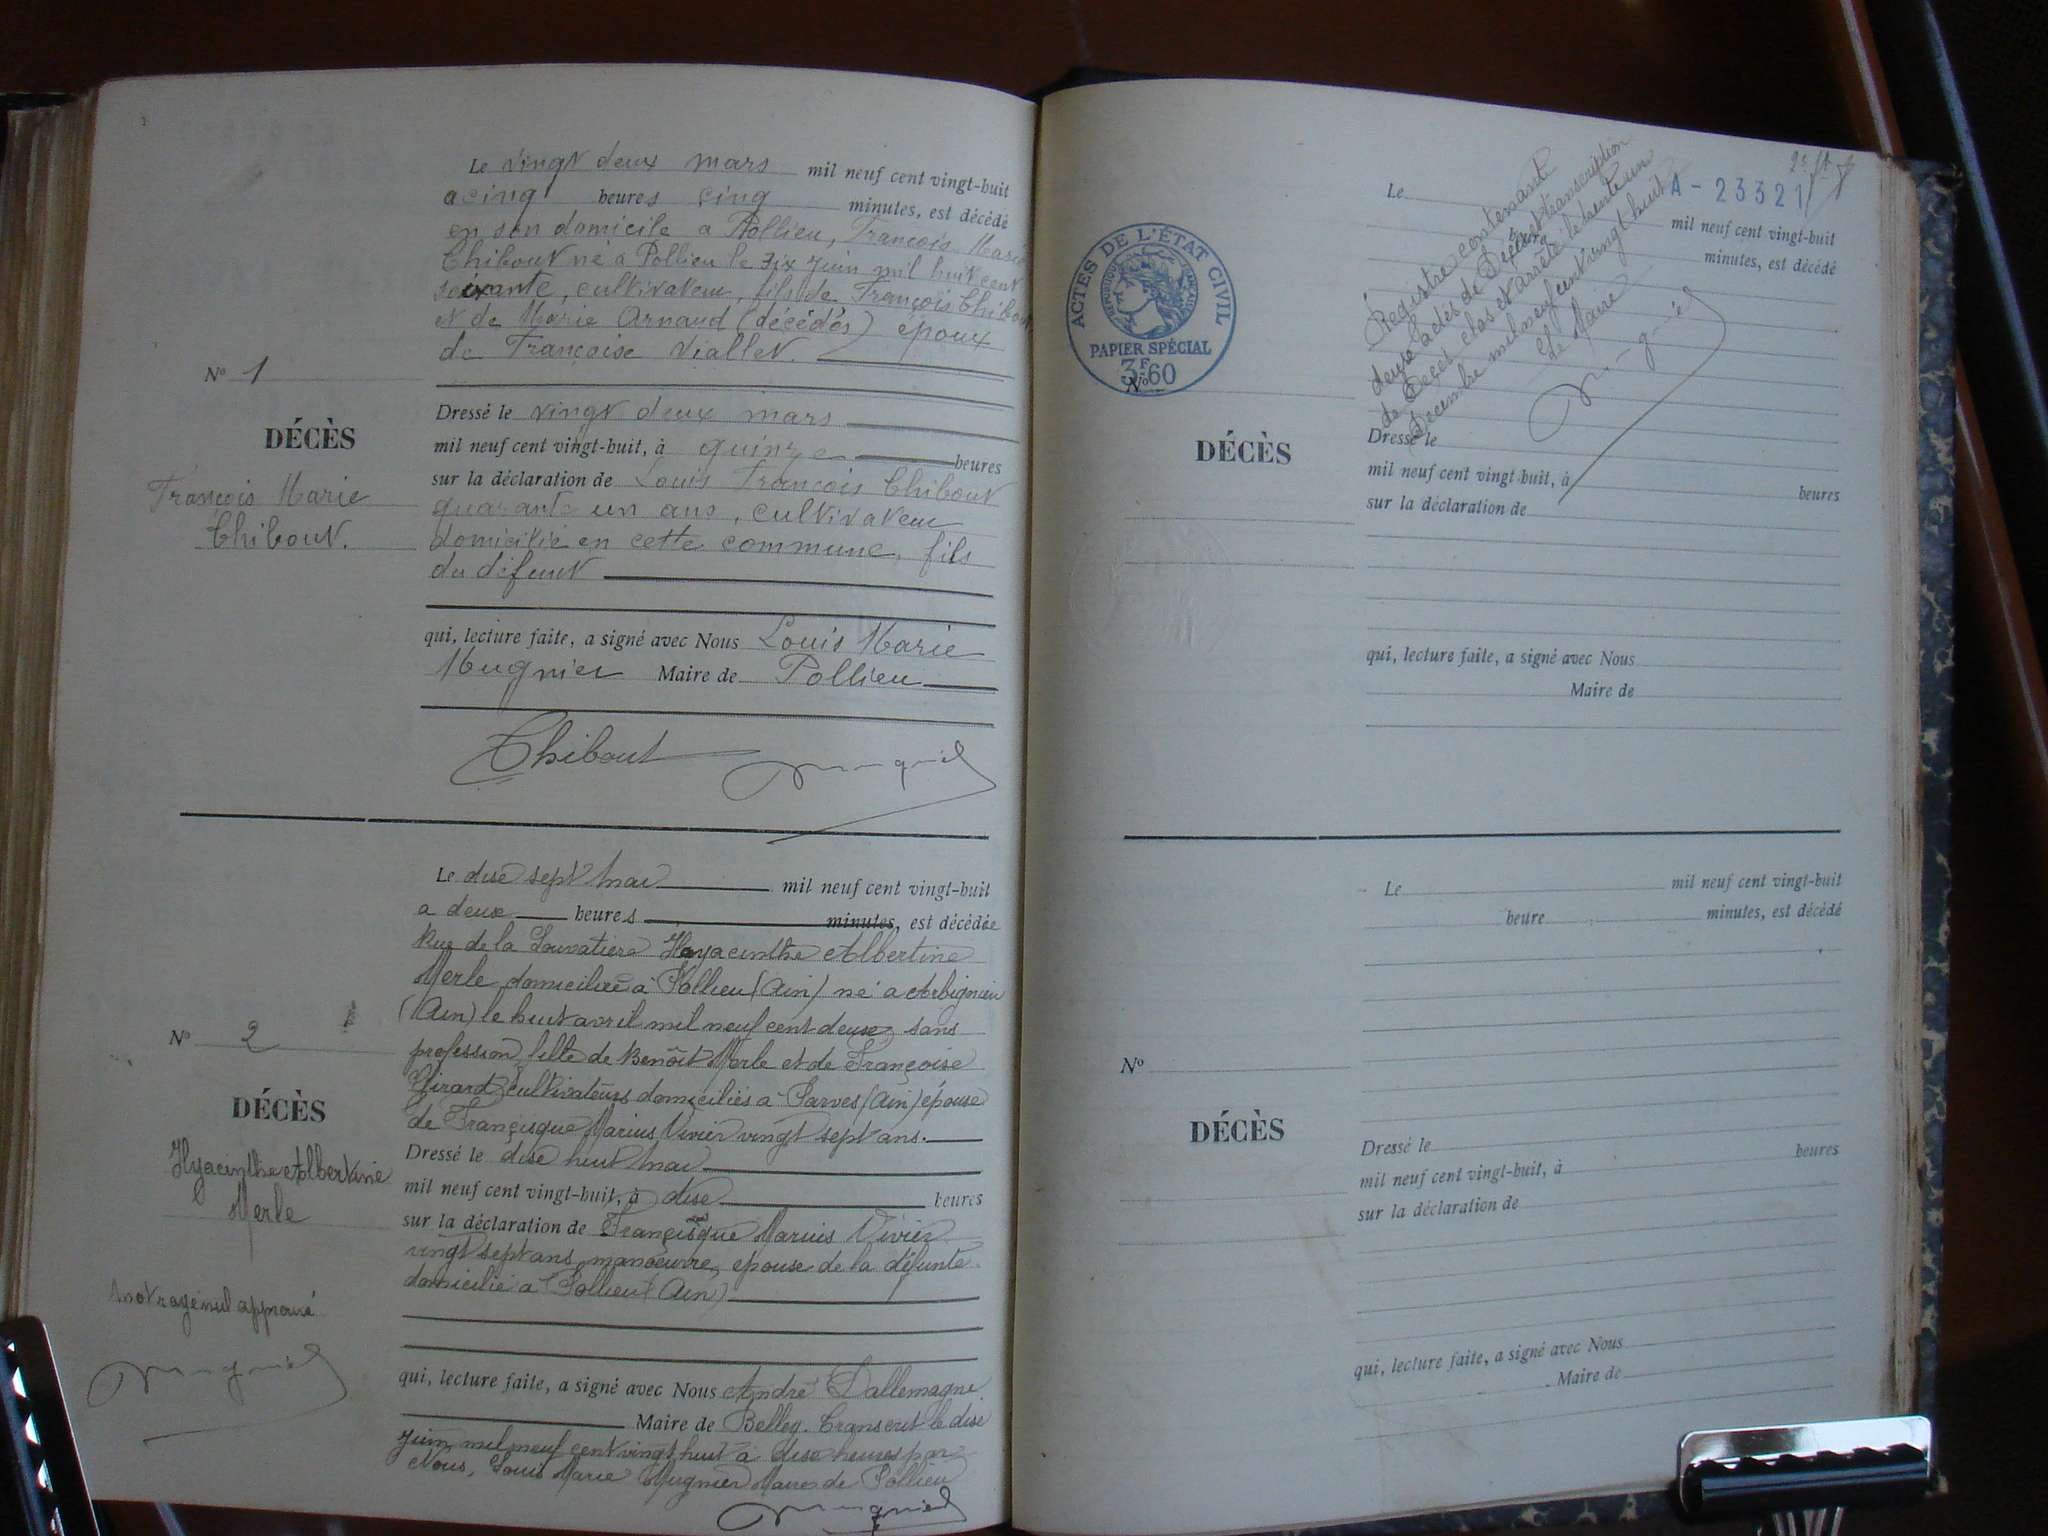 Le vingt deux mars mil neuf cent vingt-huit
a cinq heures cinq minutes, est décédé
en son domicile a Pollieu, François Marie
Thibout né à Pollieu le six juin mil huit cent
soixante, cultivateur, fils de François Thibout
et de Marie Arnaud (décédés) époux
de Françoise Viallet.
No 1
DÉCÈS
François Marie
Thibout.
Dressé le vingt deux mars
mil neuf cent vingt-huit, à quinze heures
sur la déclaration de Louis François Thibout
quarante un ans, cultivateur
domicilié en cette commune, fils
du défunt
qui, lecture faite, a signé avec Nous Louis Marie
Mugnier Maire de Pollieu
Thibout Mugnier
Le dixe sept mai mil neuf cent vingt-huit
a deux heures minutes, est décédée
Rue de la Louvatière Hyacinthe Albertine
Merle domiciliée à Pollieu (Ain) né a Arbignieu
(Ain) le huit avril mil neuf cent deux sans
profession, fille de Benoît Merle et de Françoise
Girard cultivateurs domiciliés a Parves (Ain) épouse
de Françisque Marius Vivier vingt sept ans.
No 2
DÉCÈS
Hyacinthe Albertine
Merle
Dressé le dixe huit mai
mil neuf cent vingt-huit, à dixe heures
sur la déclaration de Françisque Marius Vivier
vingt sept ans, manoeuvre, epouse de la défunte
domicilié a Pollieu (Ain)
1 mot rayé nul approuvé
Mugnier
qui, lecture faite, a signé avec Nous André Dallemagne
Maire de Belley. Transcrit le dixe
juin mil neuf cent vingt huit à dixe heures par
Nous, Louis Marie Mugnier Maire de Pollieu
Mugnier
A - 23321
ACTES DE L'ÉTAT CIVIL
RÉPUBLIQUE FRANÇAISE
PAPIER SPÉCIAL
3F60
Registre contenant
deux actes de Décès et transcription
de Décès, clos et arrêté le trente un
Décembre mil neuf cent vingt huit
Le Maire
Mugnier
Le mil neuf cent vingt-huit
heure minutes, est décédé
No
DÉCÈS
Dressé le
mil neuf cent vingt-huit, à heures
sur la déclaration de
qui, lecture faite, a signé avec Nous
Maire de
Le mil neuf cent vingt-huit
heure minutes, est décédé
No
DÉCÈS
Dressé le
mil neuf cent vingt-huit, à heures
sur la déclaration de
qui, lecture faite, a signé avec Nous
Maire de